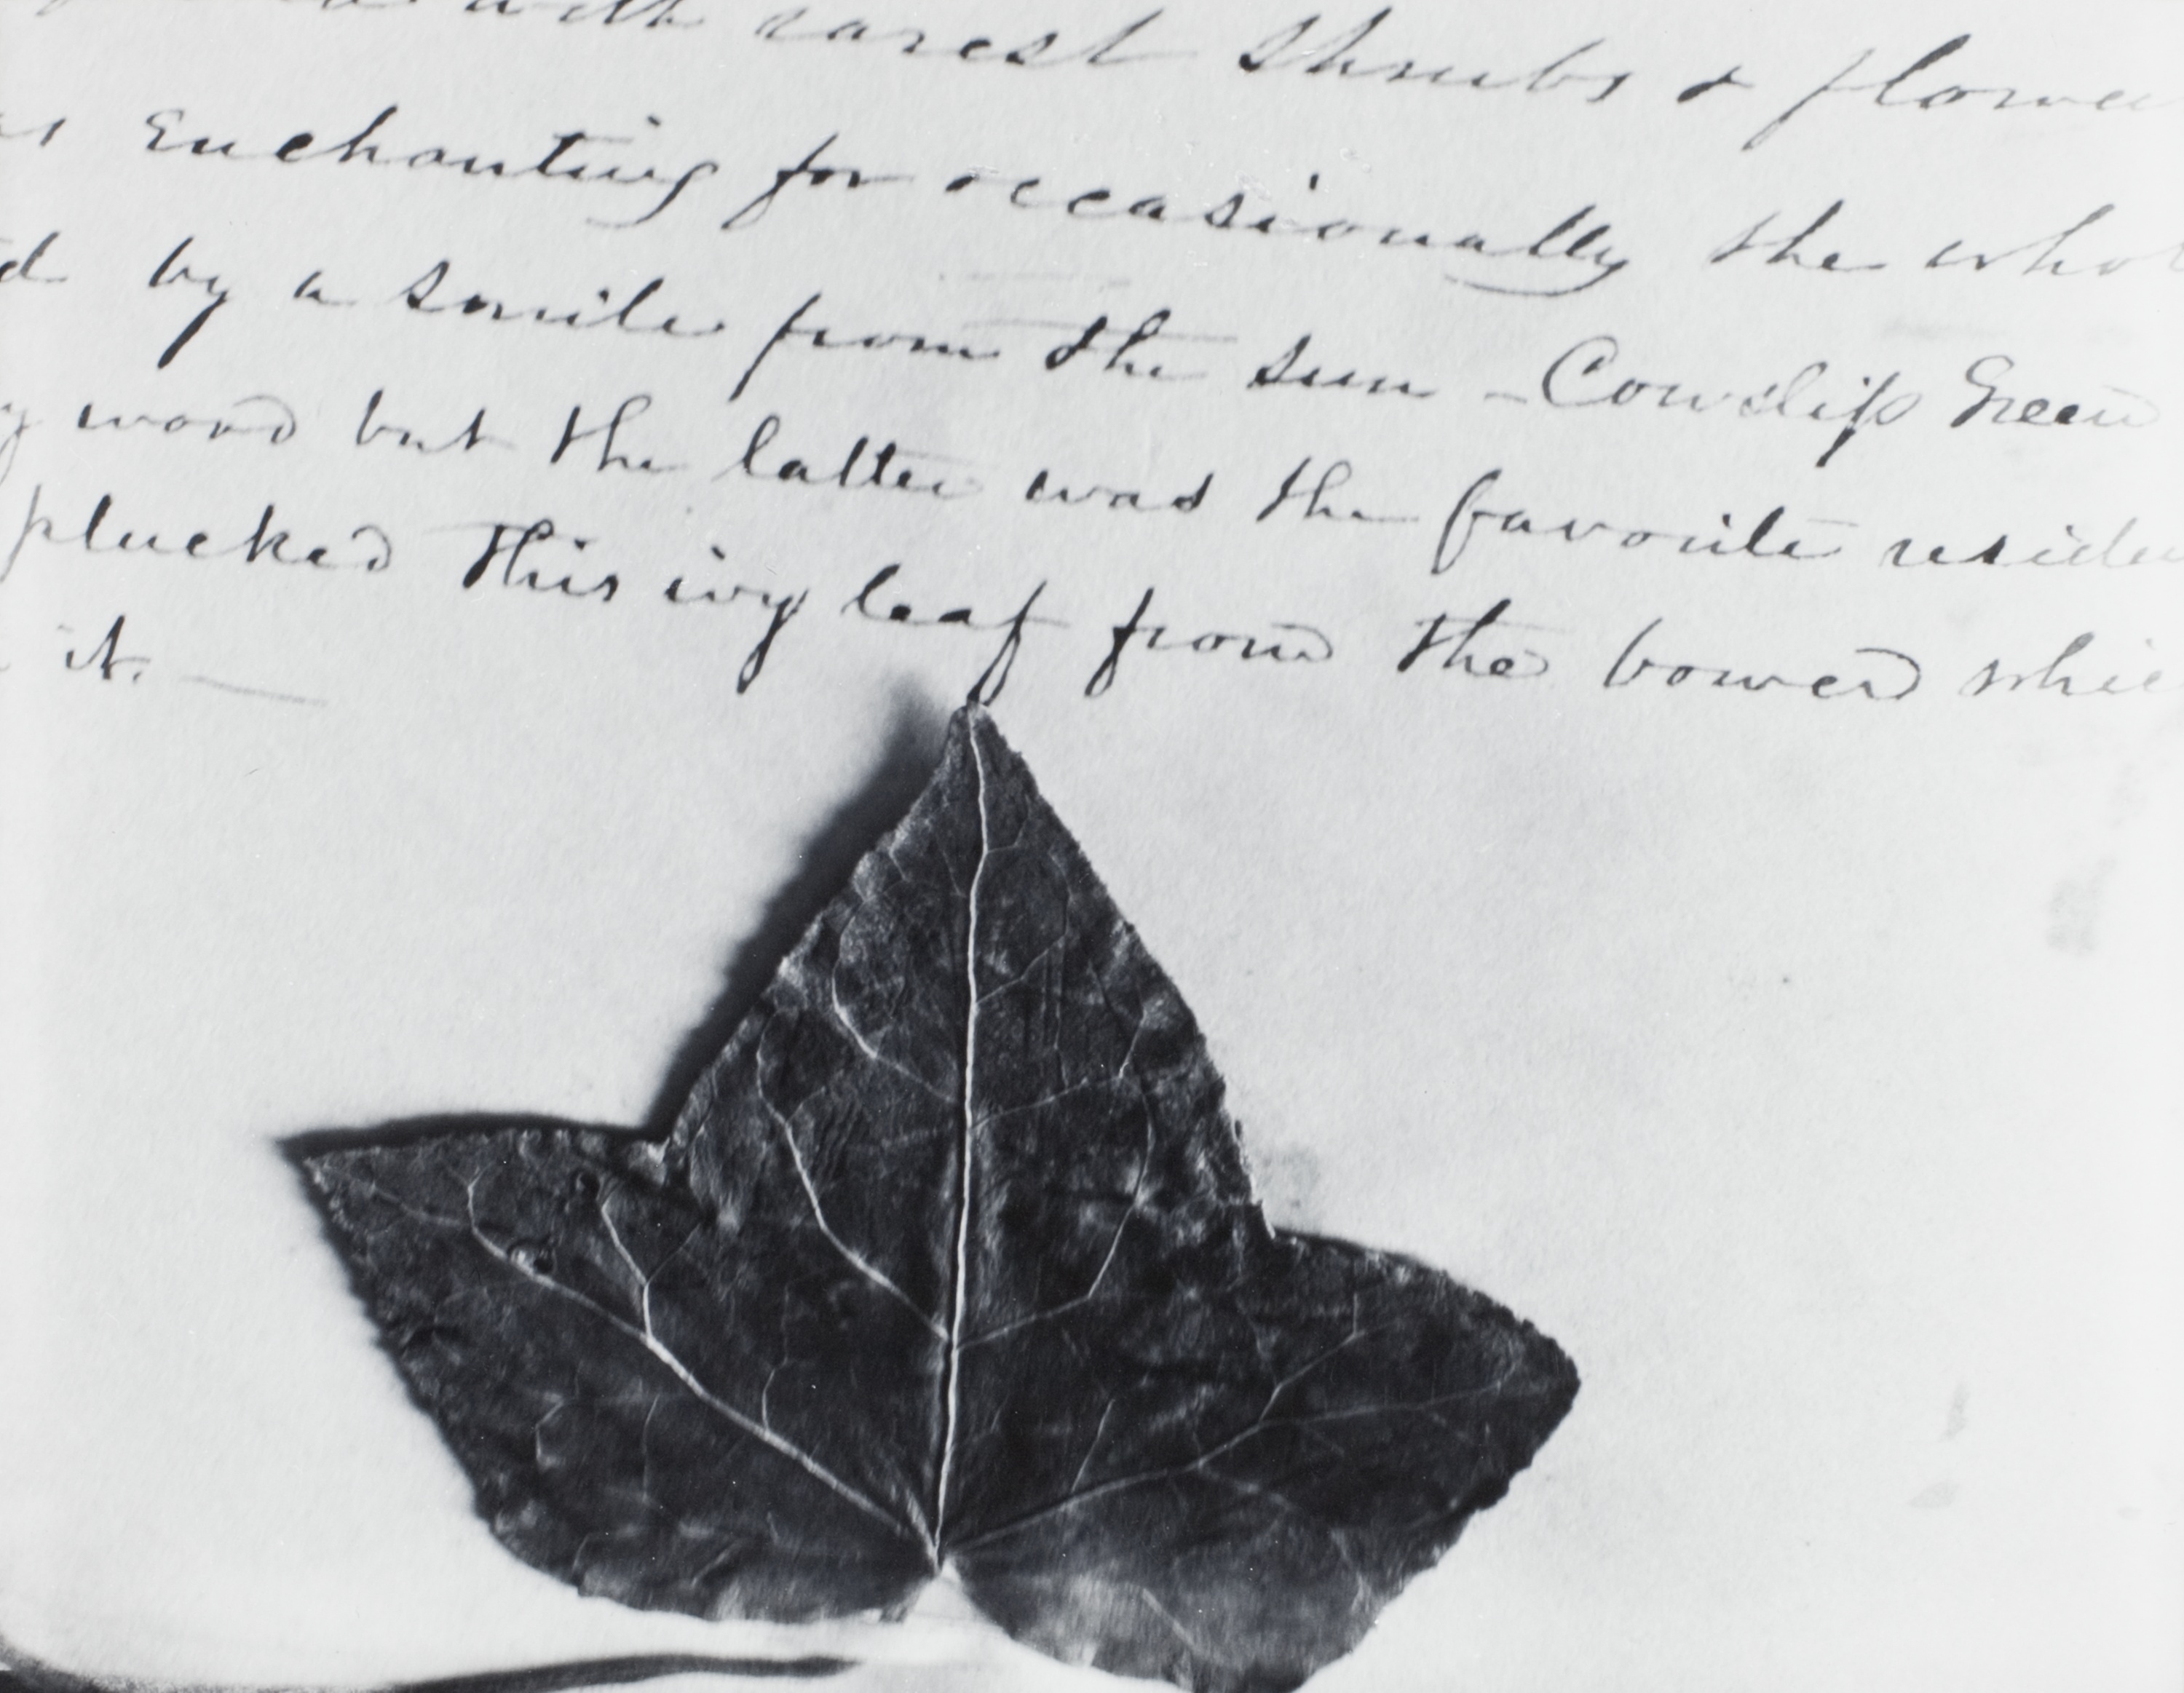 with rarest shrubs & flower
as Enchanting for occasionally the whol
d by a smile from the sun - Cowslip Green
y wood but the latter was the favorite reside
plucked this ivy leaf from the bower whic
it. —